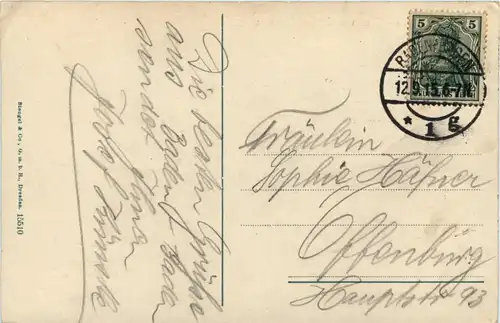 Die besten Grüße
aus Baden-Baden
sendet Ihnen
Stengel & Co., G. m. b. H., Dresden. 15510
5 5
12.9.15.6-7N.
* 1 g
Fräulein
Sophie Häfner
Offenburg
Hauptstr 93